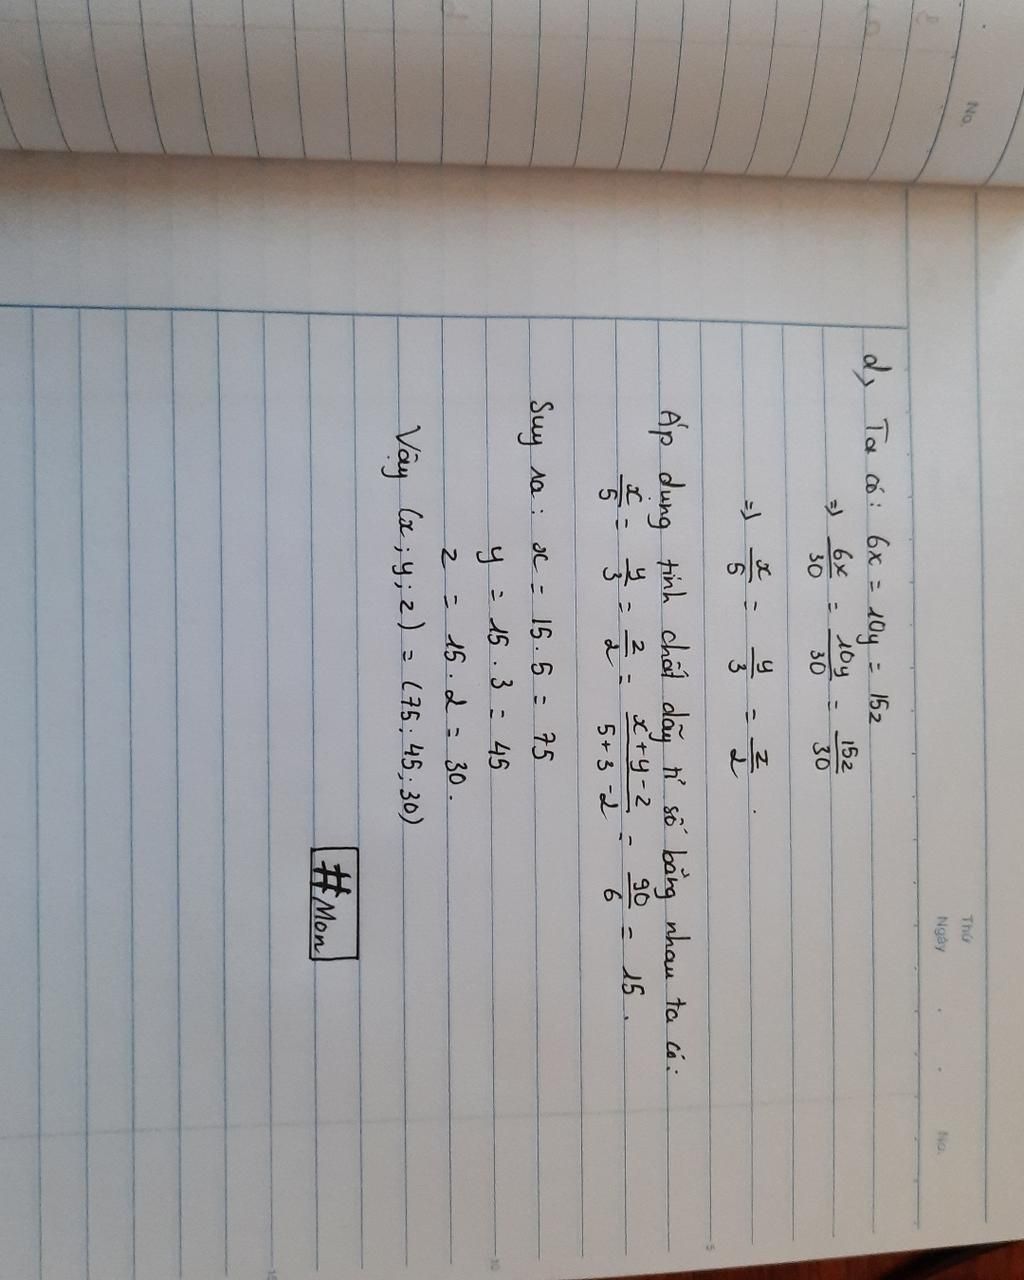 No.
Thứ
Ngày . . No.
d, Ta có: 6x = 10y = 15z
=> 6x/30 = 10y/30 = 15z/30
=> x/5 = y/3 = z/2 .
Áp dụng tính chất dãy tỉ số bằng nhau ta có:
x/5 = y/3 = z/2 = x+y-z/5+3-2 = 90/6 = 15 .
Suy ra: x = 15.5 = 75
y = 15.3 = 45
z = 15.2 = 30.
Vậy (x;y;z) = (75;45;30)
#Mon
5
10
15